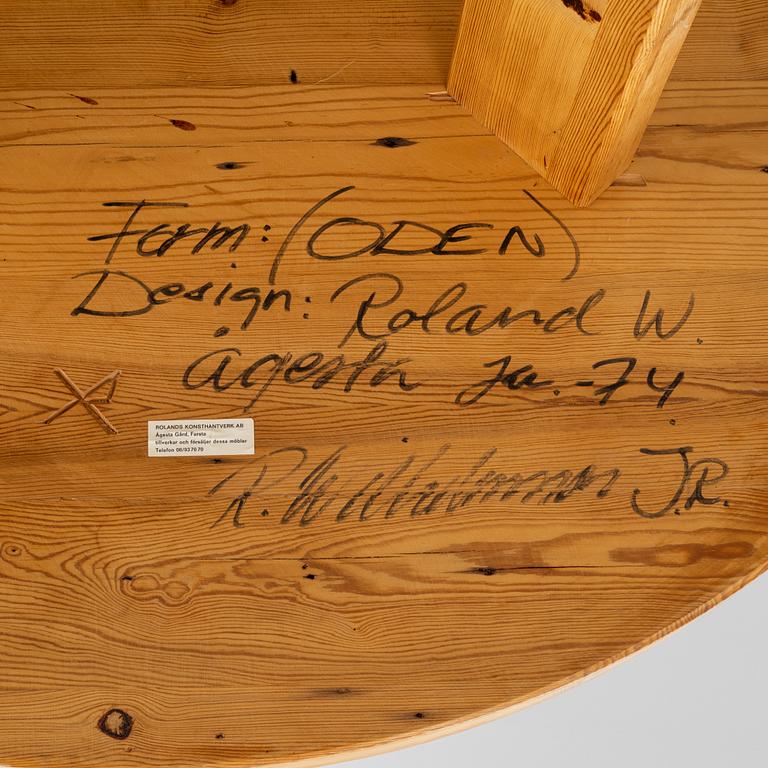 Form: (ODEN)
Design: Roland W.
Ågesta Ja.-74
ROLANDS KONSTHANTVERK AB
Ågesta Gård, Farsta
tillverkar och försäljer dessa möbler
Telefon 08/93 70 70
R. Wilhelmsson J.R.